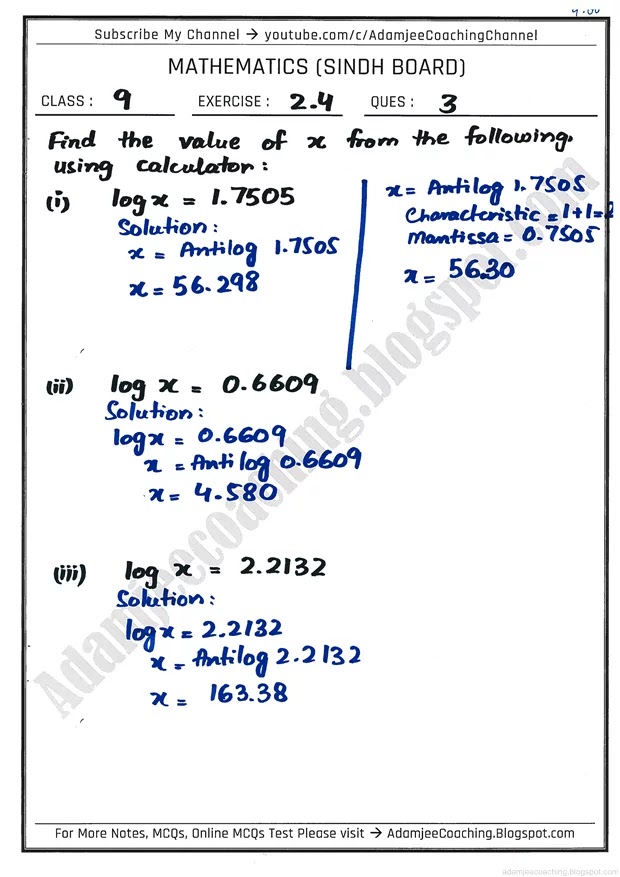 Subscribe My Channel → youtube.com/c/AdamjeeCoachingChannel
MATHEMATICS (SINDH BOARD)
CLASS : 9 EXERCISE : 2.4 QUES : 3
Find the value of x from the following.
using calculator :
(i) log x = 1.7505
Solution :
x = Antilog 1.7505
x = 56.298
x = Antilog 1.7505
Characteristic = 1+1=2
Mantissa = 0.7505
x = 56.30
(ii) log x = 0.6609
Solution :
log x = 0.6609
x = Antilog 0.6609
x = 4.580
(iii) log x = 2.2132
Solution :
log x = 2.2132
x = Antilog 2.2132
x = 163.38
Adamjeecoaching.blogspot.com
For More Notes, MCQs, Online MCQs Test Please visit → AdamjeeCoaching.Blogspot.com
adamjeecoaching.blogspot.com